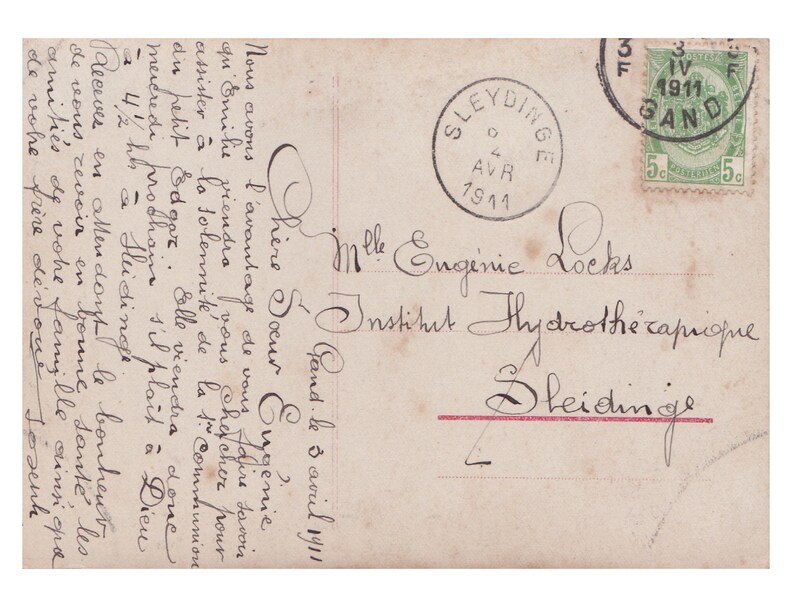 Gand le 3 avril 1911
Chère Sœur Eugénie
Nous avons l'avantage de vous faire savoir
qu'Emilie viendra vous chercher pour
assister à la solennité de la 1re Communion
du petit Edgar. Elle viendra donc
mercredi prochain s'il plaît à Dieu
à 4 1/2 hs à Sleidinge.
Recevez en attendant le bonheur
de vous revoir en bonne santé, les
amitiés de votre famille ainsi que
de votre frère dévoué Joseph
SLEYDINGE
4
AVR
1911
3
IV
1911
GAND
POSTES
POSTERIJEN
5c 5c
Mlle Eugénie Locks
Institut Hydrothérapique
Sleidinge